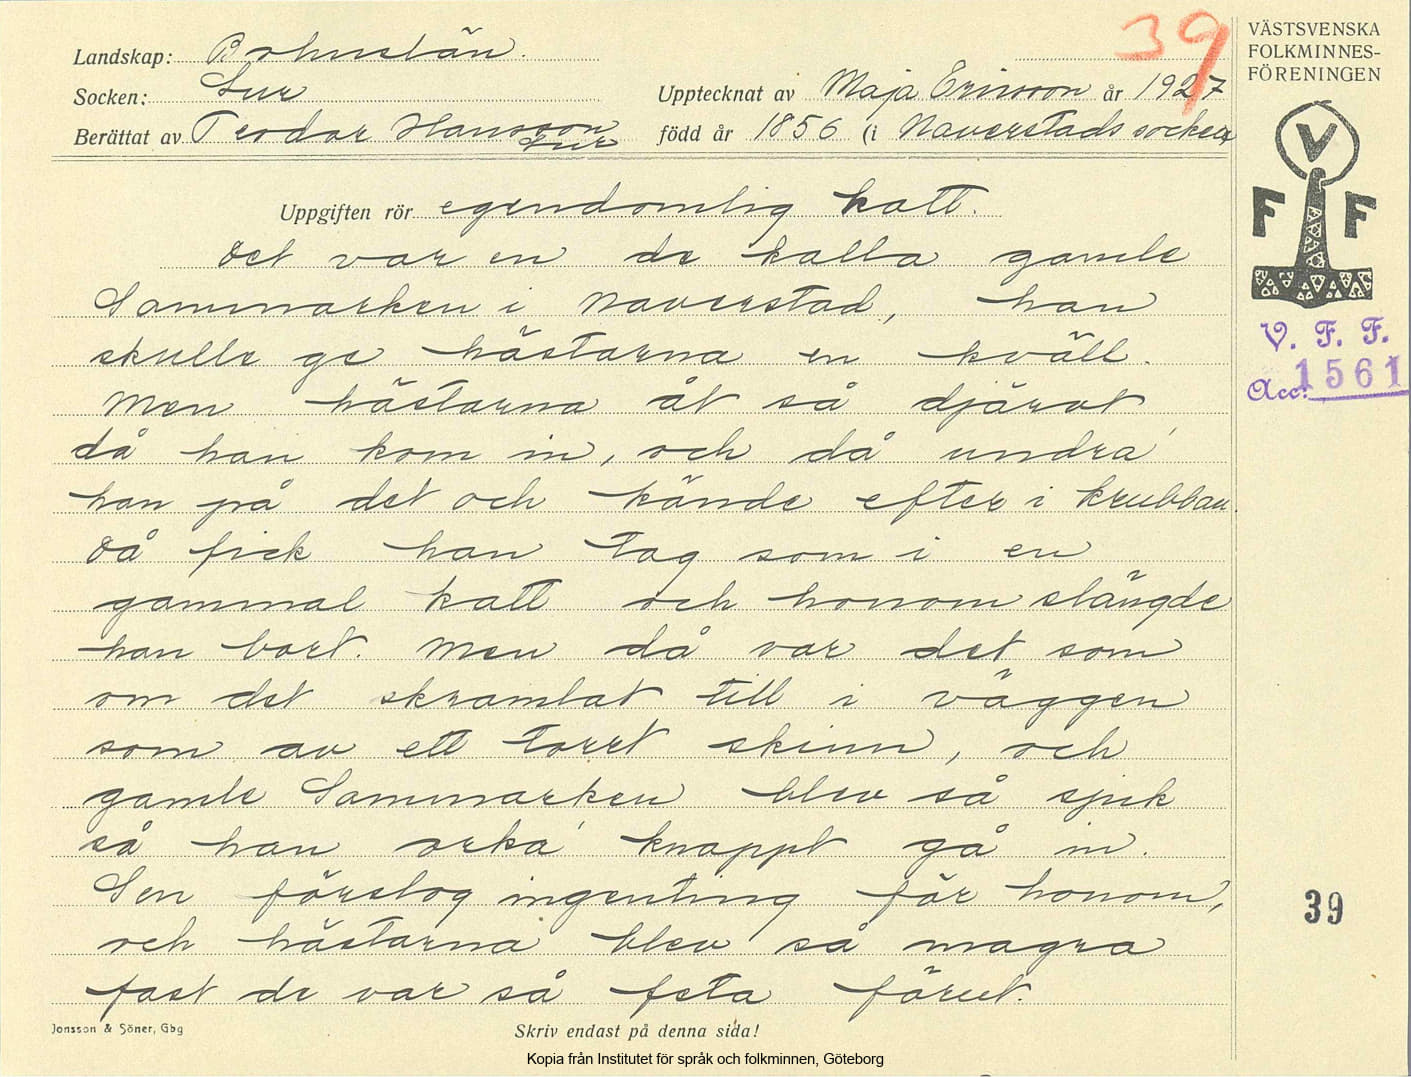 39
VÄSTSVENSKA
FOLKMINNES-
FÖRENINGEN
Landskap: Bohuslän.
Socken: Lur
Upptecknat av Maja Ericsson år 1927
Berättat av Teodor Hansson
Lur
född år 1856 (i Naverstads socken)
V
F F
V. F. F.
Acc: 1561
Uppgiften rör egendomlig katt.
Det var en de kalla gamle
Sammarken i Naverstad, han
skulle ge hästarna en kväll.
Men hästarna åt så djärvt
då han kom in, och då undra'
han på det och kände efter i krubban.
Då fick han tag som i en
gammal katt och honom slängde
han bort. Men då var det som
om det skramlat till i väggen
som av ett torrt skinn, och
gamle Sammarken blev så sjuk
så han orka' knappt gå in.
Sen förslog ingenting för honom,
och hästarna blev så magra
fast de var så feta förut.
39
Jonsson & Söner, Gbg
Skriv endast på denna sida!
Kopia från Institutet för språk och folkminnen, Göteborg